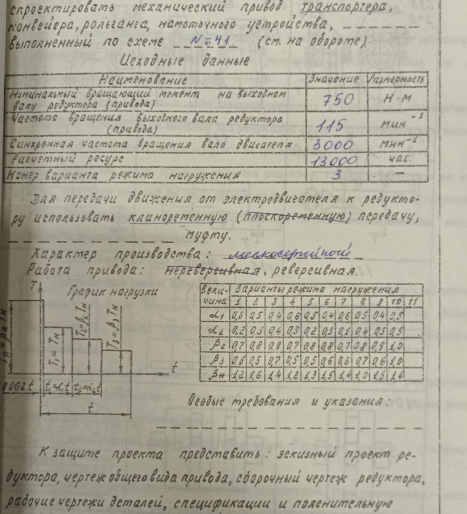 спроектировать механический привод транспортера,
конвейера, рольганга, намоточного устройства,
выполненный по схеме N=41 (см. на обороте)
Исходные данные
Наименование Значение Размерность
Номинальный вращающий момент на выходном
валу редуктора (привода) 750 Н·м
Частота вращения выходного вала редуктора
(привода) 115 мин⁻¹
Синхронная частота вращения вала двигателя 3000 мин⁻¹
Расчетный ресурс 13000 час.
Номер варианта режима нагружения 3 —
Для передачи движения от электродвигателя к редукто-
ру использовать клиноременную (плоскоременную) передачу,
муфту.
Характер производства: мелкосерийный
Работа привода: нереверсивная, реверсивная.
График нагрузки
T
T₁ = Tн
T₂=β₂Tн
T₃=β₃Tн
t
0,002t
t
Вели-
чина
Варианты режима нагружения
1 2 3 4 5 6 7 8 9 10 11
α₁
α₂
β₂
β₃
Особые требования и указания:
К защите проекта представить: эскизный проект ре-
дуктора, чертеж общего вида привода, сборочный чертеж редуктора,
рабочие чертежи деталей, спецификации и пояснительную